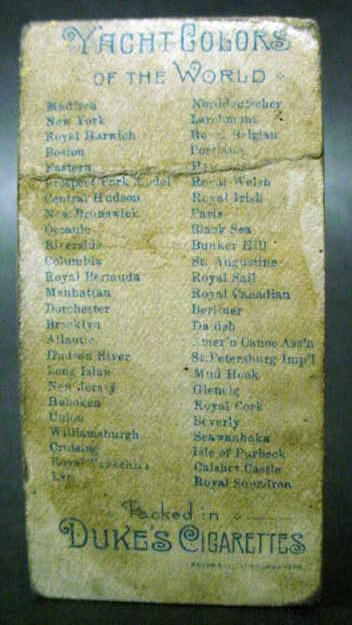 YACHT COLORS
OF THE WORLD
Madison
New York
Royal Harwich
Boston
Eastern
Prospect Park Model
Central Hudson
New Brunswick
Oceanic
Riverside
Columbia
Royal Bermuda
Manhattan
Dorchester
Brooklyn
Atlantic
Hudson River
Long Island
New Jersey
Hoboken
Union
Williamsburgh
Cruising
Royal Yorkshire
Norddeutscher
Larchmont
Royal Belgian
Portland
Royal Welsh
Royal Irish
Paris
Black Sea
Bunker Hill
St. Augustine
Royal Sail
Royal Canadian
Berliner
Danish
Canoe Ass'n
St. Petersburg Imp'l
Mud Hook
Glencig
Royal Cork
Beverly
Seawanhaka
Isle of Purbeck
Calshot Castle
Royal Squadron
Packed in
DUKE'S CIGARETTES